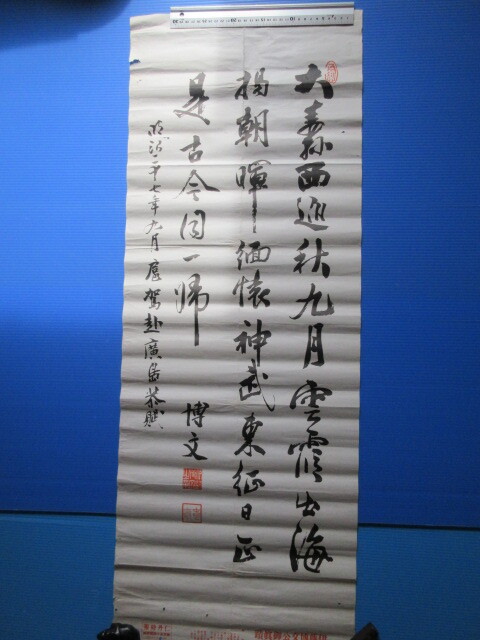 大纛西巡秋九月雲霞出海
揚朝暉緬懷神武東征日正
是古今同一帰
博文
明治二十七年九月扈駕赴廣島恭賦